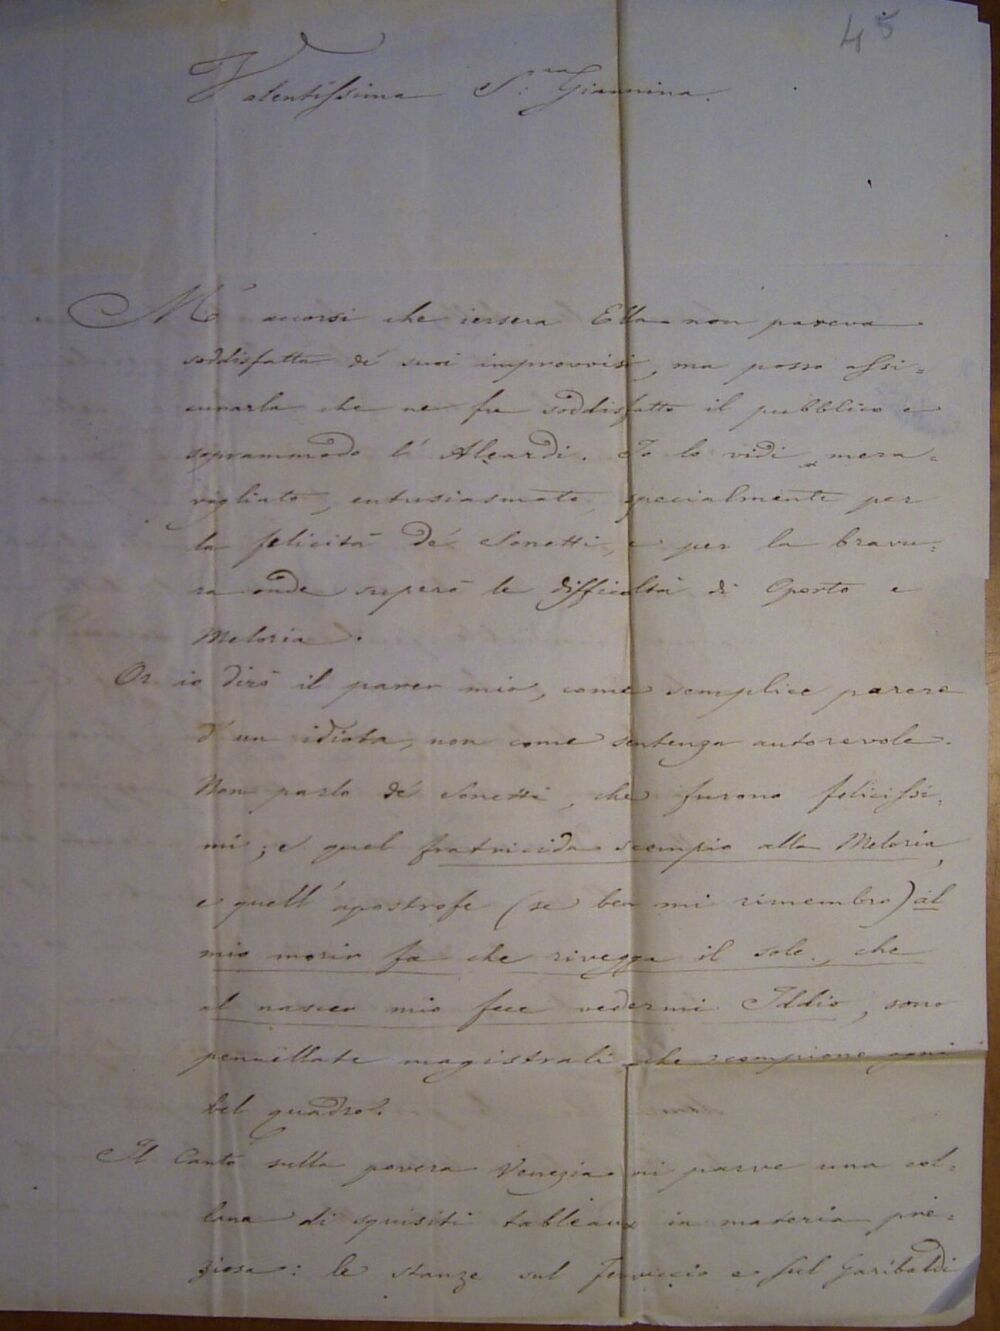 45
Valentissima S.ra Giannina.
M'accorsi che iersera Ella non pareva
soddisfatta de' suoi improvvisi, ma posso assi=
curarla che ne fu soddisfatto il pubblico e
soprammodo l'Aleardi. Io lo vidi mera=
vigliato, entusiasmato, specialmente per
la felicità de' Sonetti, e per la bravu=
ra onde superò le difficoltà di Oporto e
Meloria.
Or io dirò il parer mio, come semplice parere
d'un idiota, non come sentenza autorevole.
Non parlo de' Sonetti, che furono felicissi=
mi; e quel fratricida scempio alla Meloria,
e quell'apostrofe (se ben mi rimembro) al
mio morir fa che rivegga il sole, che
al nascer mio fece vedermi Iddio, sono
pennellate magistrali che compiono ogni
bel quadro.
Il Canto sulla povera Venezia mi parve una col=
lana di squisiti tableaux in materia pre=
ziosa: le stanze sul Ferruccio e sul Garibaldi